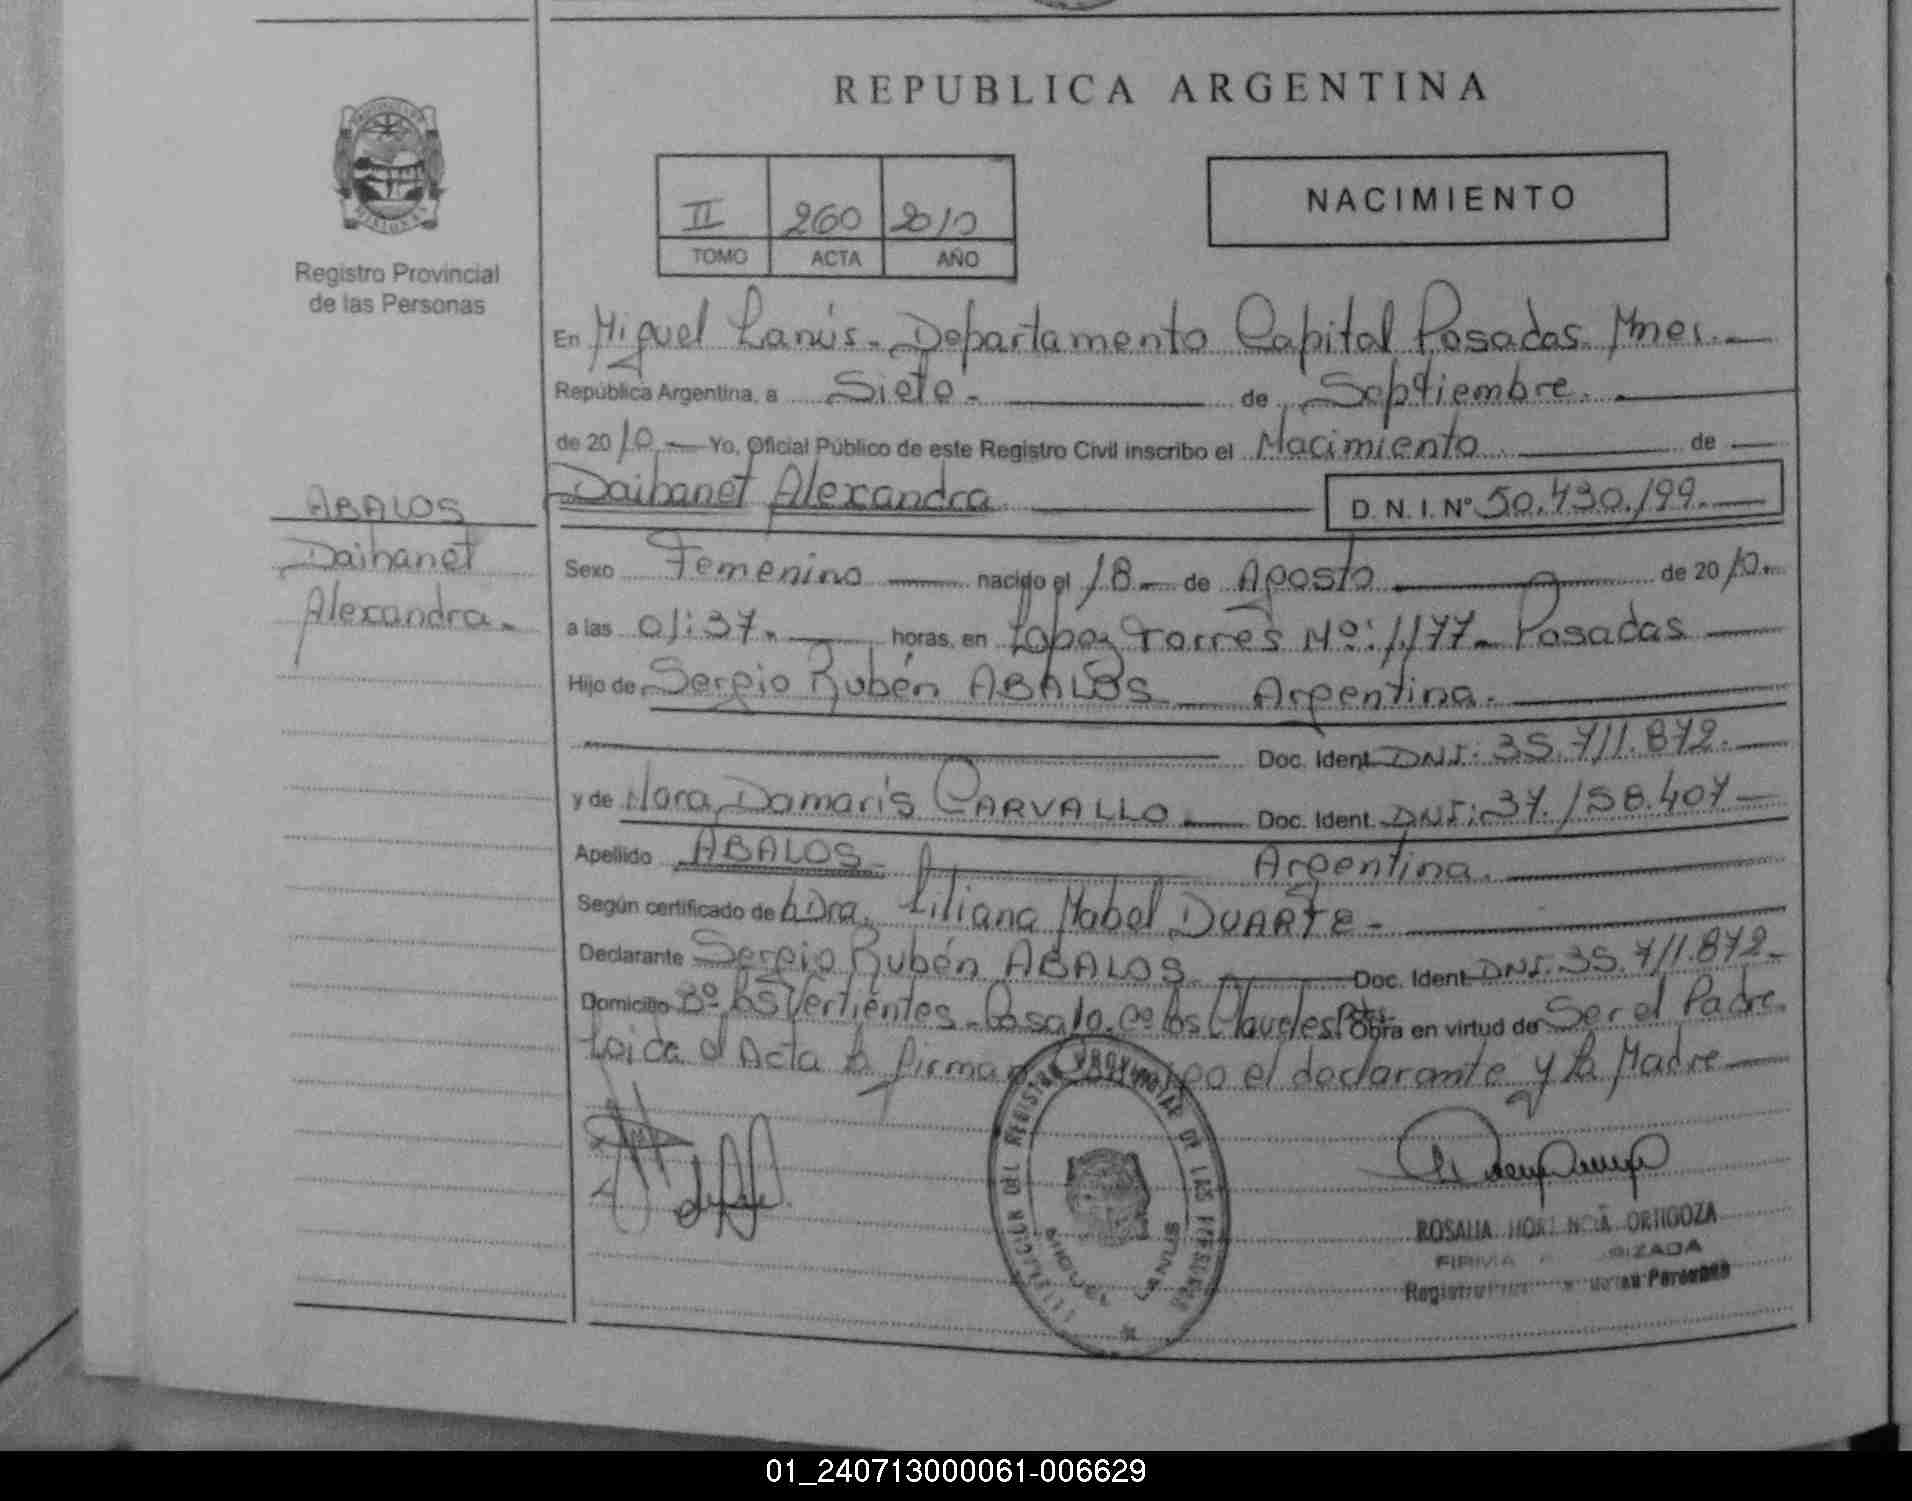 REPUBLICA ARGENTINA
Registro Provincial
de las Personas
II 260 2010
TOMO ACTA AÑO
NACIMIENTO
En Miguel Lanús. Departamento Capital Posadas. Mnes.
República Argentina, a Siete. de Septiembre.
de 2010 Yo, Oficial Público de este Registro Civil inscribo el Nacimiento de
Daihanet Alexandra D. N. I. Nº 50.430.199.
ABALOS
Daihanet
Alexandra.
Sexo Femenino nacido el 18 de Agosto de 2010.
a las 01:37. horas, en Lopez Torres Nº: 1.177. Posadas
Hijo de Sergio Rubén ABALOS Argentina.
Doc. Ident. DNI: 35.711.872.
y de Nora Damaris CARVALLO Doc. Ident. DNI: 37.158.407
Apellido ABALOS. Argentina.
Según certificado de la Dra. Liliana Mabel DUARTE.
Declarante Sergio Rubén ABALOS Doc. Ident. DNI. 35.711.872.
Domicilio Bº Las Vertientes. Casa 10. los Claveles Obra en virtud de Ser el Padre.
Leida el Acta la firman conmigo el declarante y la Madre
DEL REGISTRO PROVINCIAL DE LAS PERSONAS
MIGUEL LANUS
ROSALIA HORTENCIA ORTIGOZA
FIRMA
Registro Personas
01_240713000061-006629